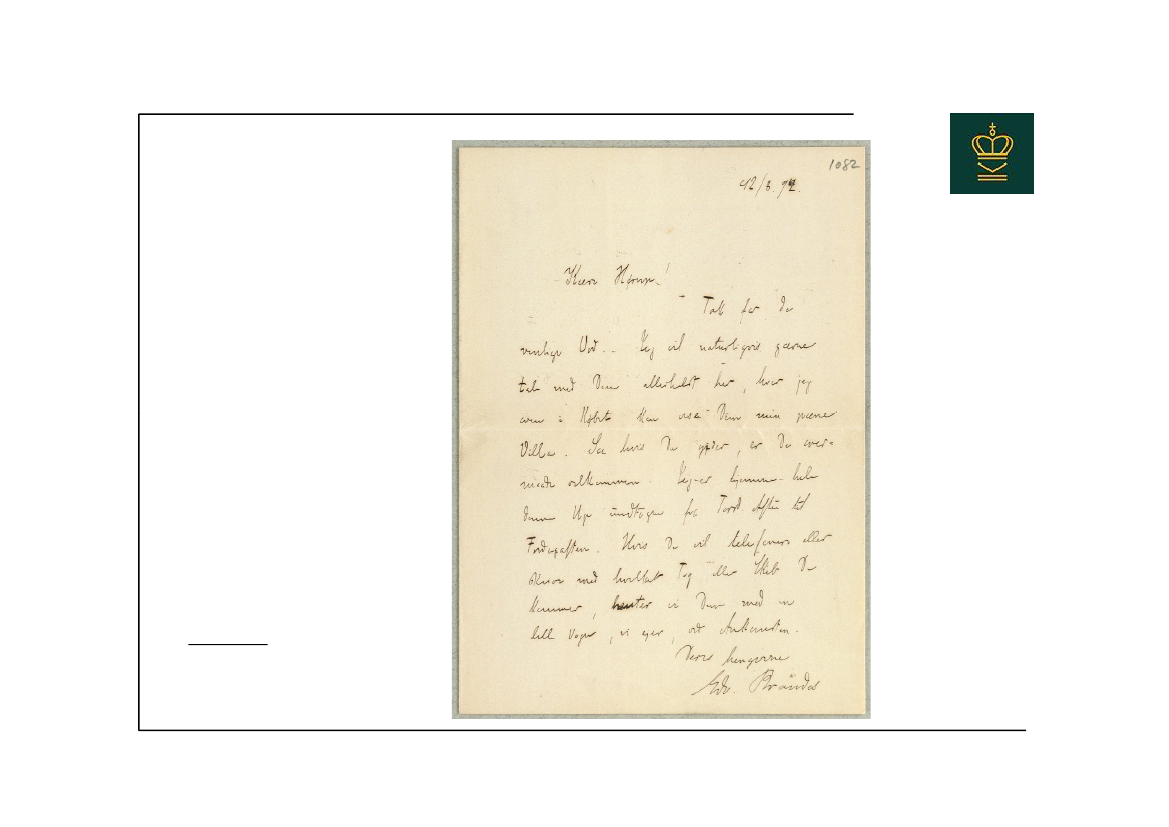 1082
12/8. 92.
Kære Hørup!
Tak for De
venlige Ord. Jeg vil naturligvis gærne
tale med Dem allerhelst her, hvor jeg
som i Købt kan vise Dem min pæne
Villa. Saa hvis De gider, er De over-
maade velkommen. Jeg er hjemme hele
denne Uge undtagen fra Torsd. Aften til
Fredagaften. Hvis De vil telefonere eller
skrive med hvilket Tog eller Skib De
kommer, henter vi Dem med en
lille Vogn, vi ejer, ved Ankomsten.
Deres hengivne
Edv. Brandes